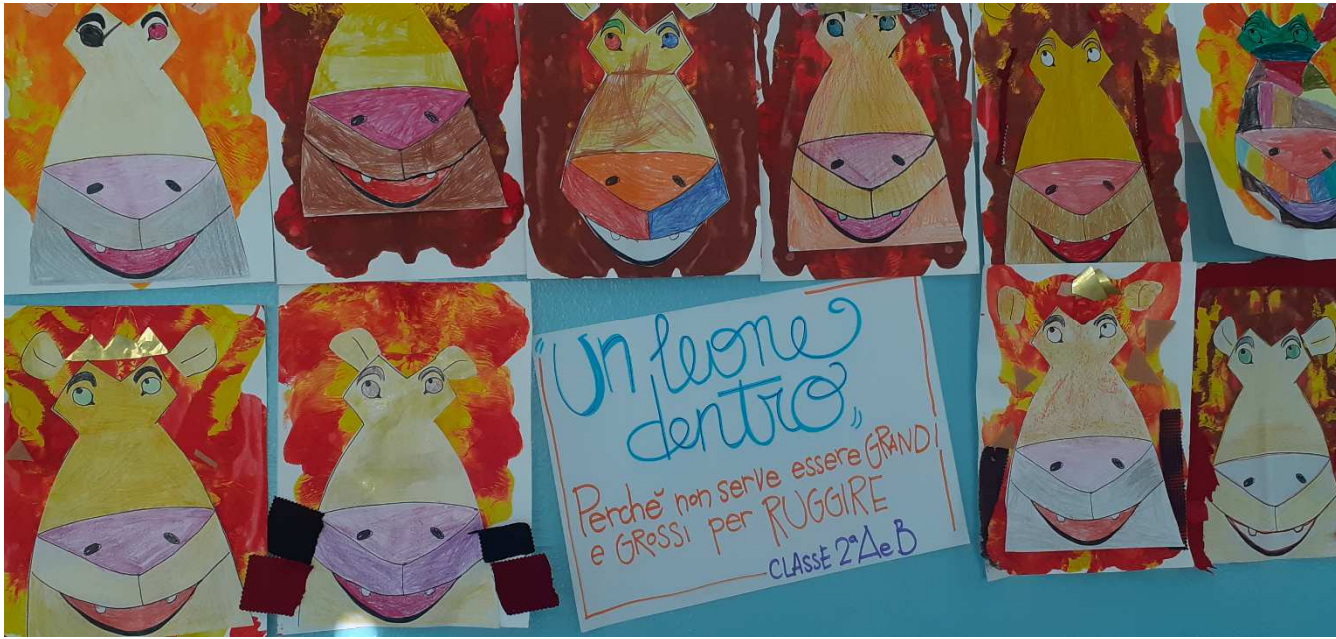 "Un leone
dentro"
Perchè non serve essere GRANDI
e GROSSI per RUGGIRE
CLASSE 2ª A e B